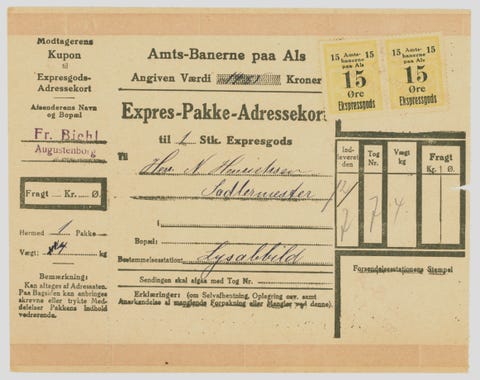 Modtagerens
Kupon
til
Expresgods-
Adressekort
Afsenderens Navn
og Bopæl
Fr. Bichl
Augustenborg
Fragt Kr. Ø.
Hermed 1 Pakke
Vægt: 4 kg
Bemærkning:
Kan aftages af Adressaten.
Paa Bagsiden kan anbringes
skrevne eller trykte Med-
delelser Pakkens Indhold
vedrørende.
Amts-Banerne paa Als
Angiven Værdi Kroner
Expres-Pakke-Adressekort
til 1 Stk. Expresgods
Til
Hr. N. Henrichsen
Sadlermester
i
Bopæl:
Bestemmelsesstation: Lysabbild
Sendingen skal afgaa med Tog Nr.
Erklæringer: (om Selvafhentning, Oplagring osv. samt
Anerkendelse af manglende Forpakning eller Mangler ved denne).
15 Amts- 15
banerne
paa Als
15
Øre
Ekspressgods
15 Amts- 15
banerne
paa Als
15
Øre
Ekspressgods
Ind-
leveret
den
Tog
Nr.
Vægt
kg
Fragt
Kr. Ø
12/7
7
4.
Forsendelsesstationens Stempel